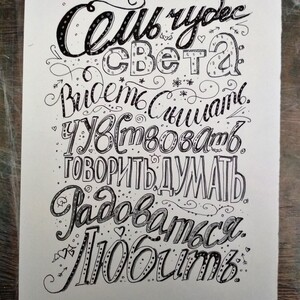 Семь чудес
света
Видеть, Слышать,
чувствовать,
говорить, думать,
Радоваться,
Любить.